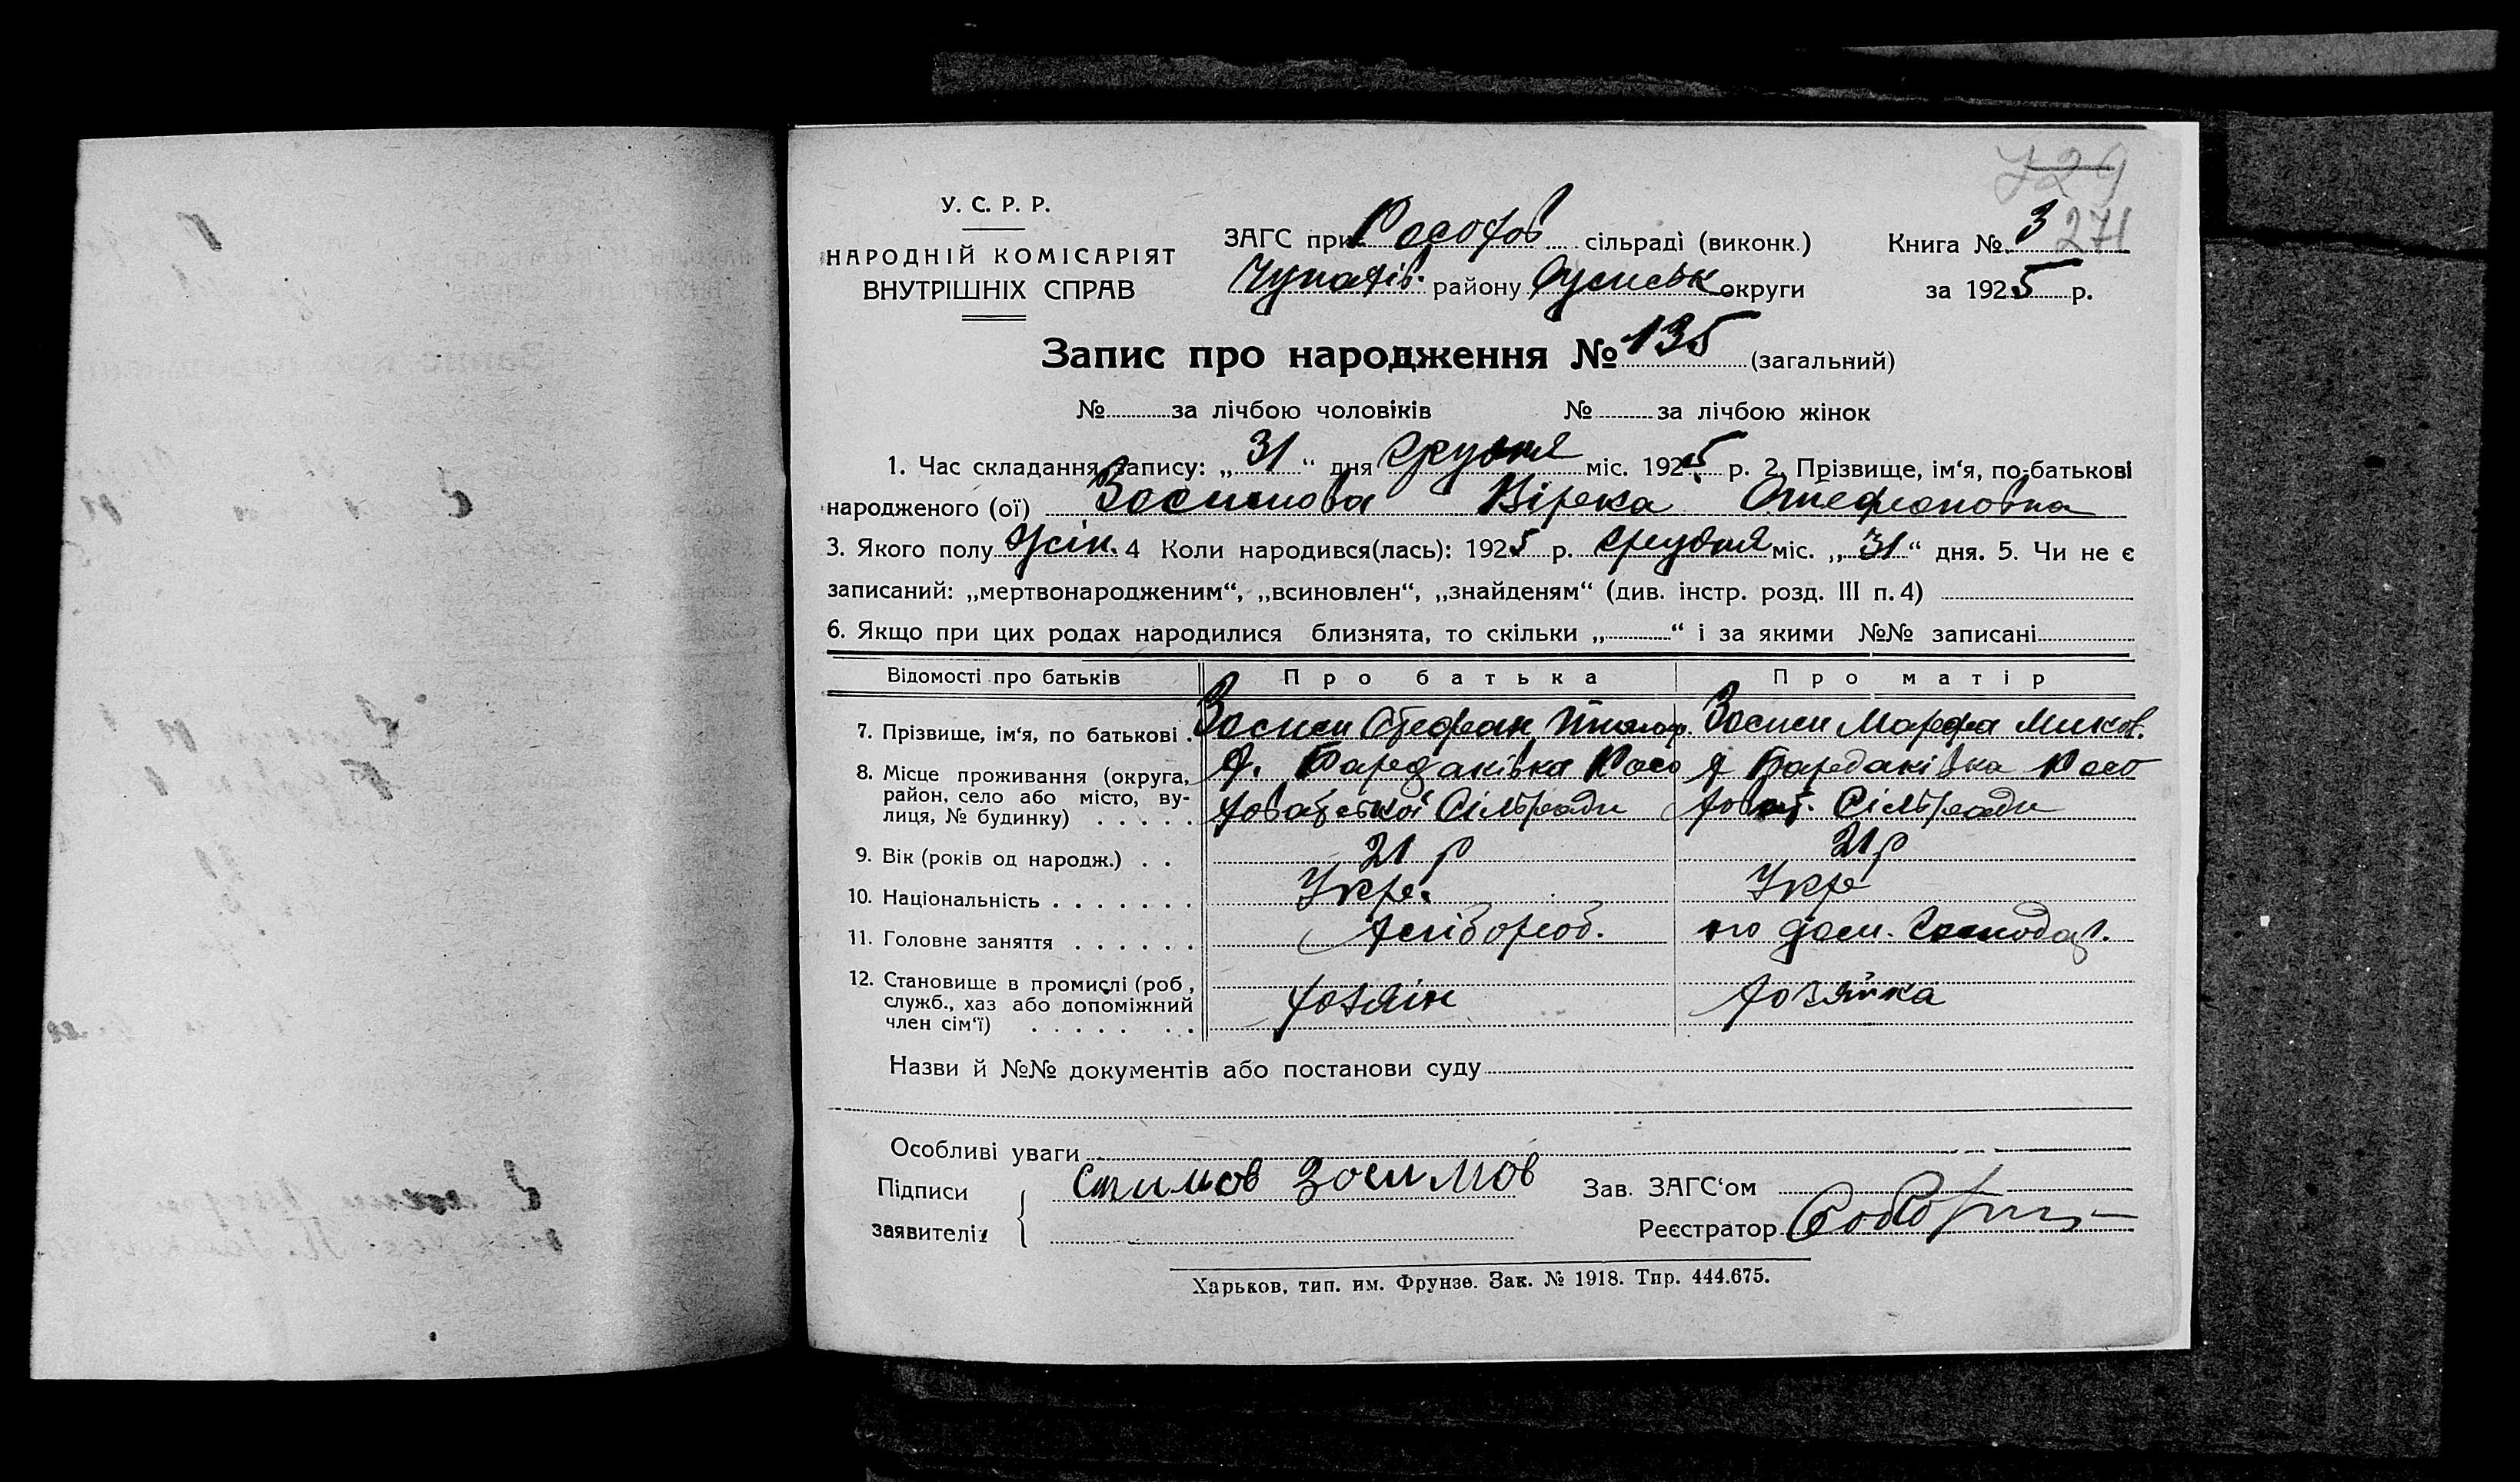 729
У. С. Р. Р.
НАРОДНІЙ КОМІСАРІЯТ
ВНУТРІШНІХ СПРАВ
ЗАГС при Росохов сільраді (виконк.)
Чупахів. району Сумськ округи
Книга № 3 271
за 1925 р.
Запис про народження № 135 (загальний)
№ за лічбою чоловіків № за лічбою жінок
1. Час складання запису: „ 31 “ дня Грудня міс. 1925 р. 2. Прізвище, ім'я, по-батькові
народженого (ої) Зосимова Вірка Стефановна
3. Якого полу жін. 4 Коли народився(лась): 1925 р. грудня міс. „ 31 “ дня. 5. Чи не є
записаний: „мертвонародженим“, „всиновлен“, „знайденям“ (див. інстр. розд. III п. 4)
6. Якщо при цих родах народилися близнята, то скільки „ “ і за якими №№ записані
Відомості про батьків Про батька Про матір
7. Прізвище, ім'я, по батькові . Зосим Стефан Зосим Марфа Миков.
8. Місце проживання (округа, район, село або місто, вулиця, № будинку) . . . . . Х. Бардаківка Росоховатської Сільради Х Бардаківка Росоховат. Сільради
9. Вік (років од народж.) . . 21 р 21 р
10. Національність . . . . . . . Укре. Укре
11. Головне заняття . . . . . . Хлібороб. по дом. Господар.
12. Становище в промислі (роб, служб., хаз або допоміжний член сім'ї) . . . . . . . Хозяін Хозяйка
Назви й №№ документів або постанови суду
Особливі уваги
Підписи заявителів Зосимов
Зав. ЗАГС'ом
Реєстратор
Харьков, тип. им. Фрунзе. Зак. № 1918. Тир. 444.675.